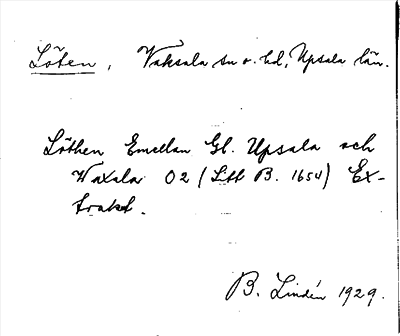 Löten, Vaksala sn o. hd, Upsala län.
Löthen Emellan Gl. Upsala och
Waxala O2 (Litt B. 1654) Ex-
trakt.
B. Lindén 1929.